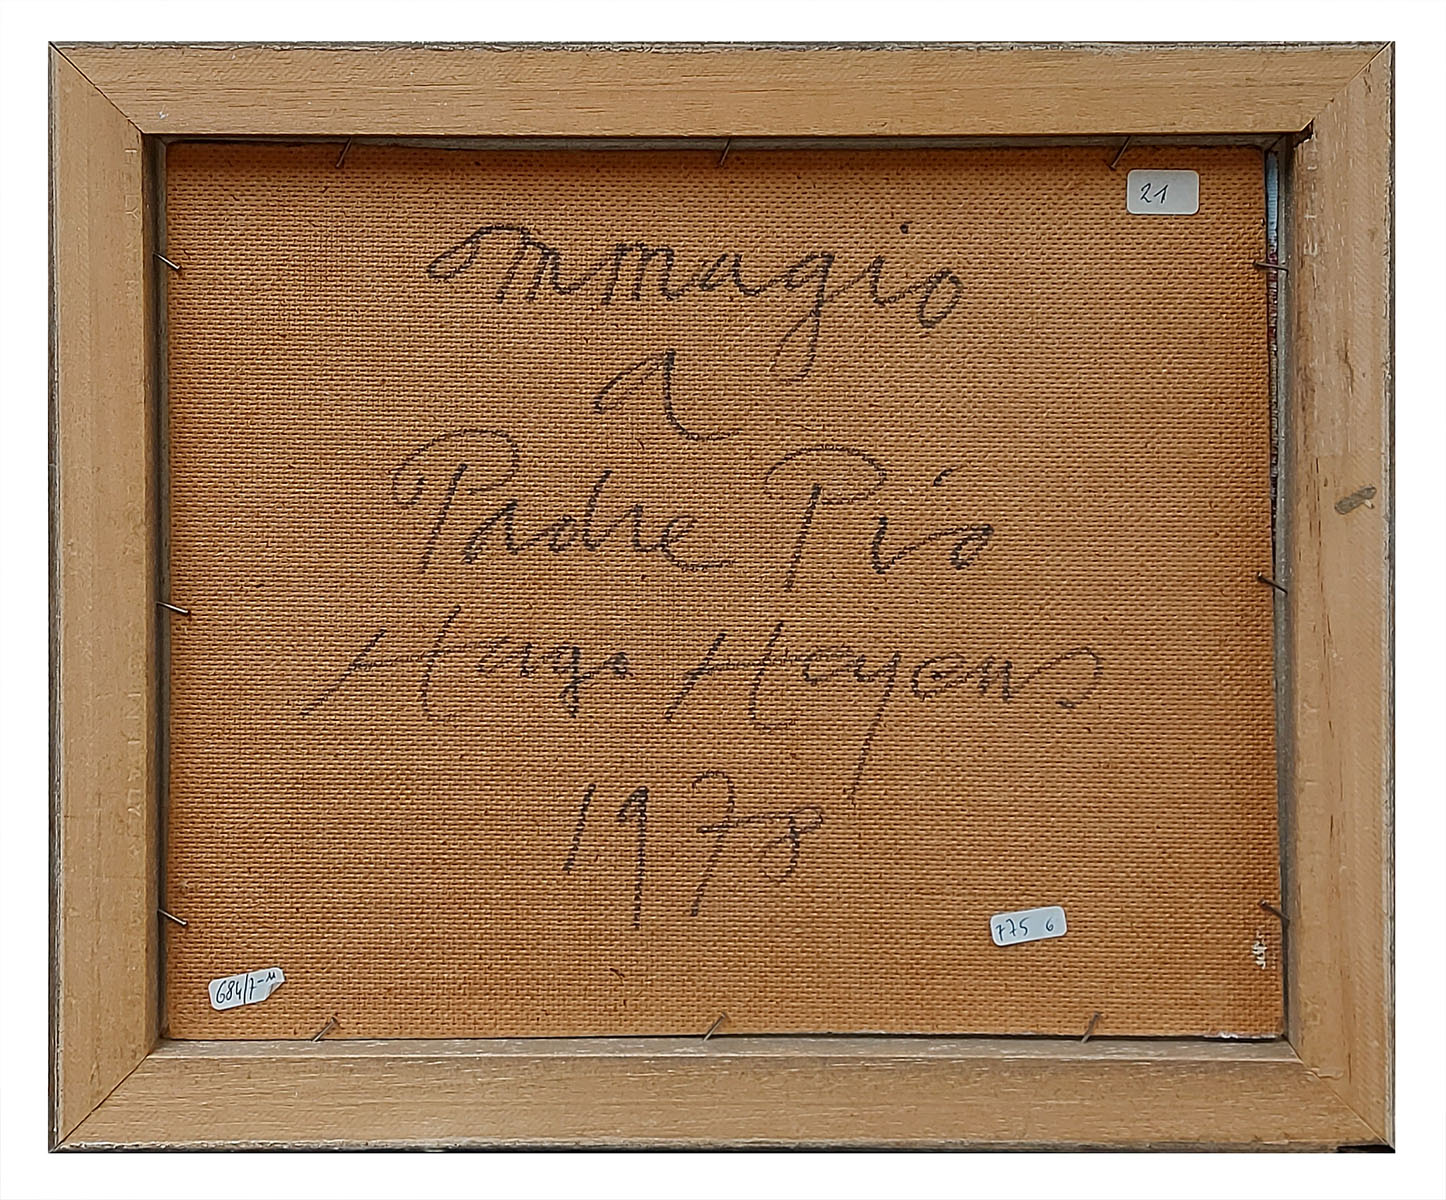 21
Ommagio
a
Padre Pio
Hugo Heyens
1978
775 6
684/7-M